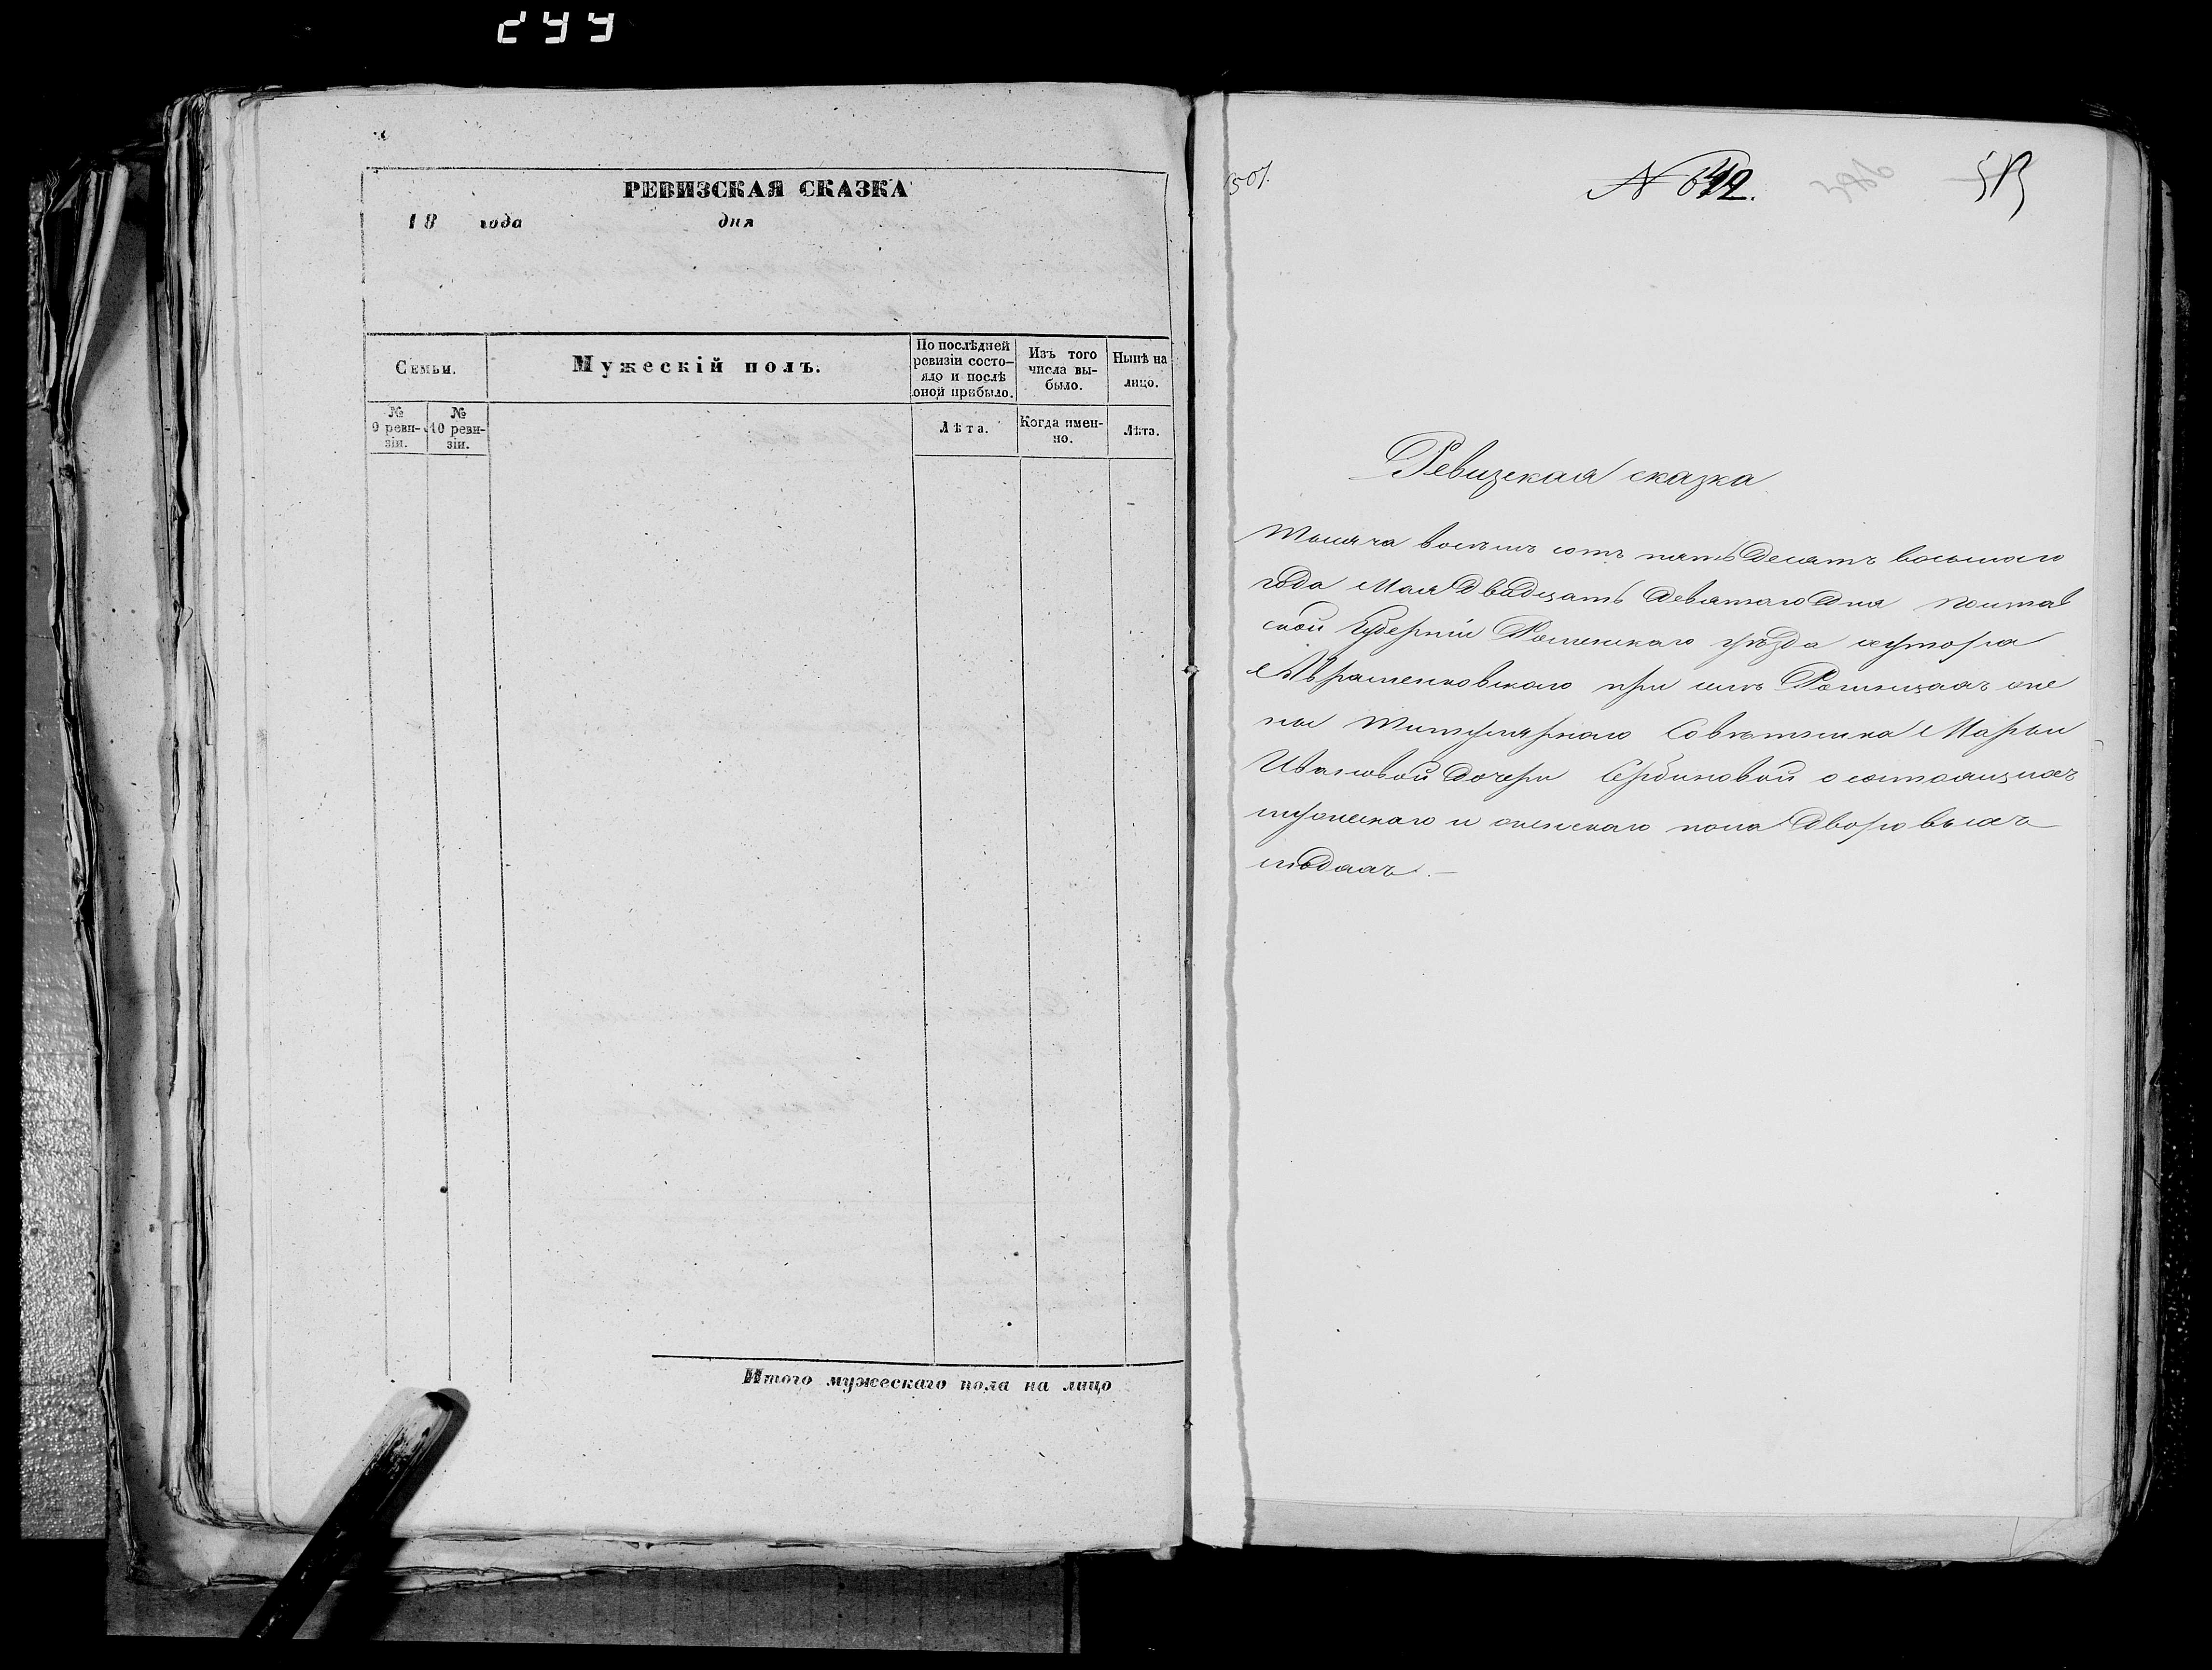 РЕВИЗСКАЯ СКАЗКА
18 года дня
Семьи.
Мужескій полъ.
По послѣдней ревизіи состо-
яло и послѣ
оной прибыло.
Изъ того
числа вы-
было.
Нынѣ на
лицо.
№
9 реви-
зіи.
№
10 реви-
зіи.
Лѣта.
Когда имен-
но.
Лѣта.
Итого мужескаго пола на лицо
501.
Ревизская сказка
Тысяча восемь сотъ пятьдесятъ восьмаго
года Мая двадцать девятаго дня Полтав
ской Губерніи Роменскаго уѣзда хутора
при Жены
Титулярнаго Совѣтника Марьи
Ивановой дочери Сербиновой о состоящихъ
мужескаго и женскаго пола дворовыхъ
людяхъ. —